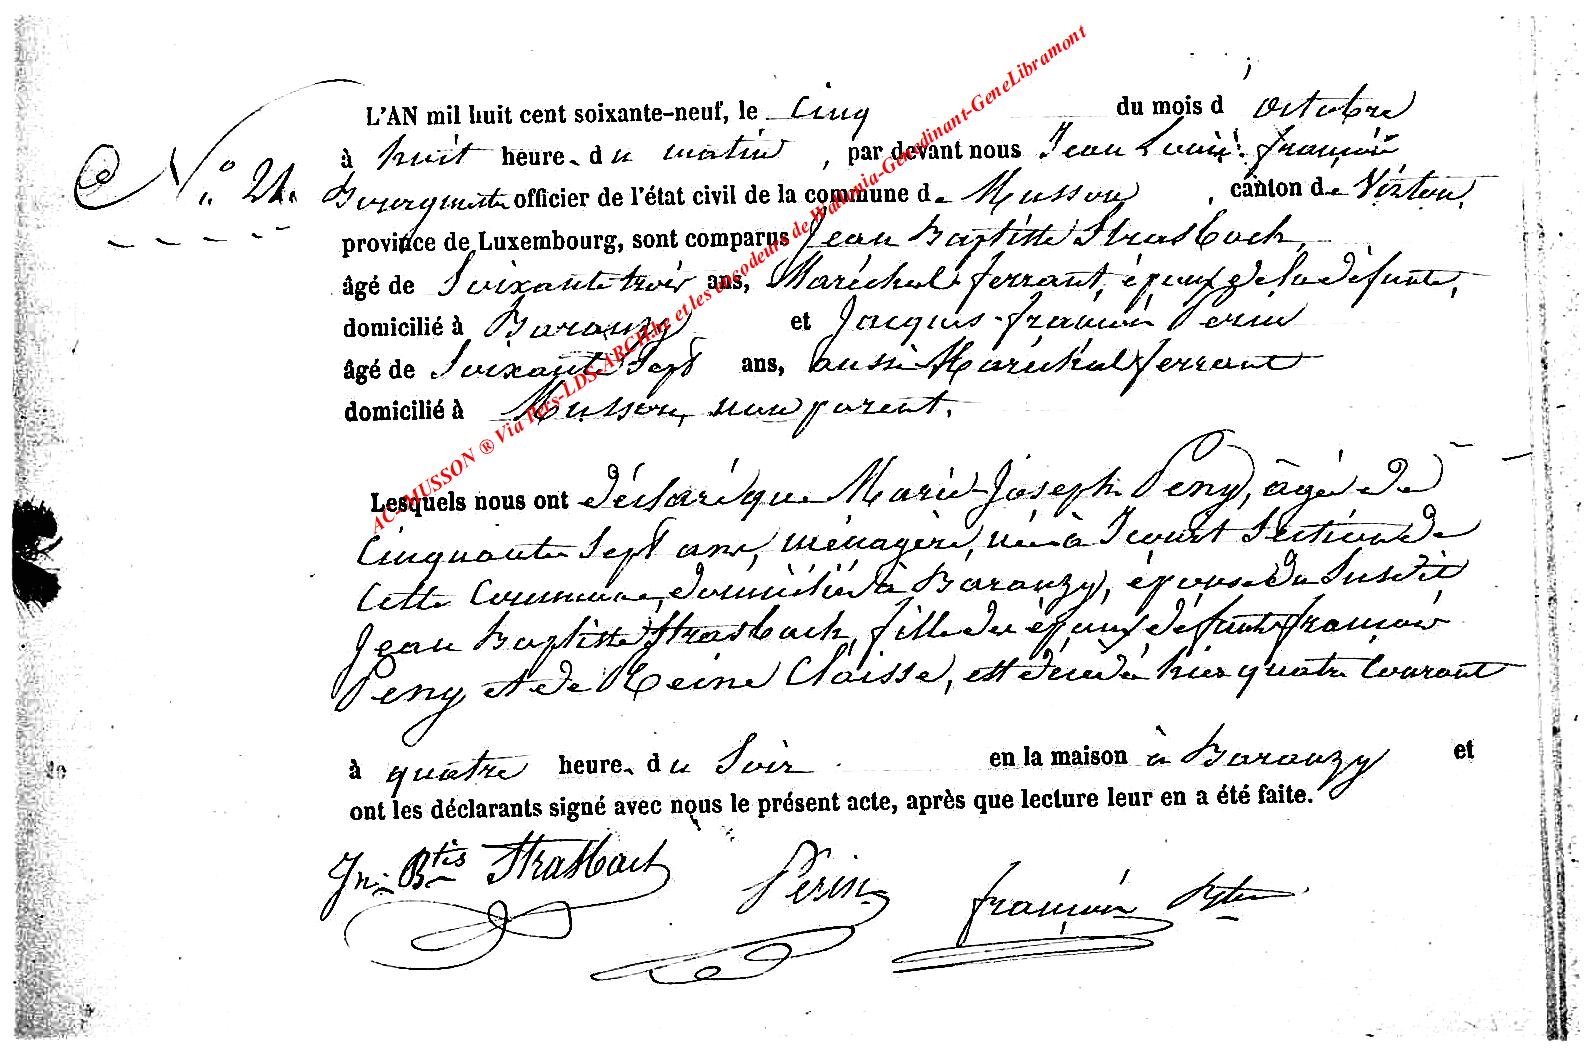 L'AN mil huit cent soixante-neuf, le Cinq du mois d octobre
N.° 21. à huit heure s du matin, par devant nous Jean Louis François
Bourguette officier de l'état civil de la commune de Musson, canton de Virton,
province de Luxembourg, sont comparus Jean Baptiste Strasbach
âgé de Soixante trois ans, Maréchal ferrant, époux de la défunte,
domicilié à Baranzy et Jacques-françois Perin
âgé de Soixante Sept ans, aussi Maréchal ferrant
domicilié à Musson, non parent.
Lesquels nous ont déclaré que Marie-Joseph Peny, âgée de
Cinquante Sept ans, ménagère, née à Icourt Section de
cette Commune, domiciliée à Baranzy, épouse du Susdit
Jean Baptiste Strasbach, fille des époux défunts françois
Peny et de Reine Claisse, est décédée hier quatre Courant
à quatre heure s du Soir en la maison à Baranzy et
ont les déclarants signé avec nous le présent acte, après que lecture leur en a été faite.
Jn. Btis Strasbach Perin françois
AC-MUSSON ® Via Pers-LDS-ARCH.be et les encodeurs de Wallonia-Genedinant-GeneLibramont